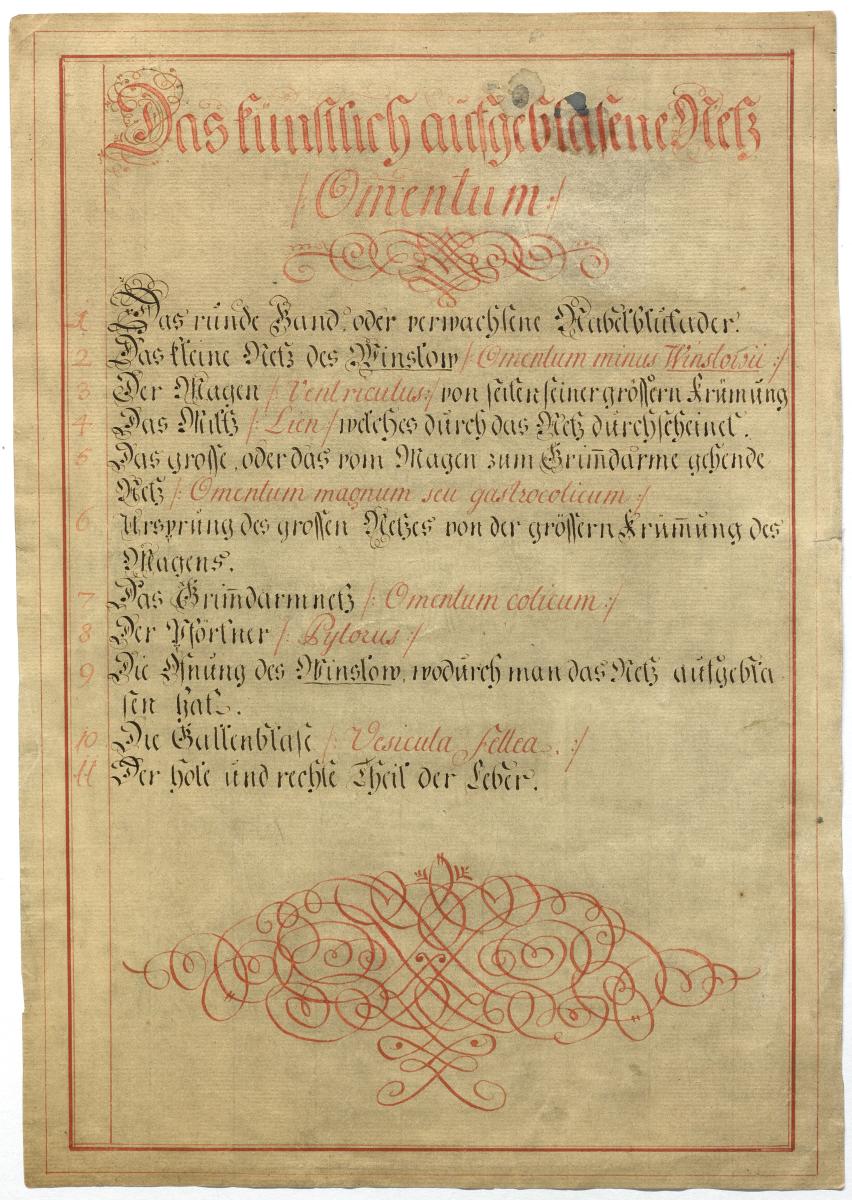 Das künstlich aufgeblasene Netz
/: Omentum :/
1 Das runde Band, oder verwachsene Nabelblutader.
2 Das kleine Netz des Winslow /: Omentum minus Winslowii :/
3 Der Magen /: Ventriculus :/ von seiten seiner grössern Krümung
4 Das Miltz /: Lien :/ welches durch das Netz durchscheinet.
5 Das grosse, oder das vom Magen zum Grim̅darme gehende
Netz /: Omentum magnum seu gastrocolicum :/
6 Ursprung des grossen Netzes von der grössern Krüm̅ung des
Magens.
7 Das Grim̅darmnetz /: Omentum colicum :/
8 Der Pförtner /: Pylorus :/
9 Die Öfnung des Winslow, wodurch man das Netz aufgebla
sen hat.
10 Die Gallenblase /: Vesicula fellea. :/
11 Der hole und rechte Theil der Leber.